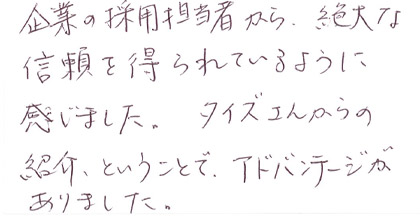 企業の採用担当者から、絶大な
信頼を得られているように
感じました。 タイズさんからの
紹介、ということで、アドバンテージが
ありました。